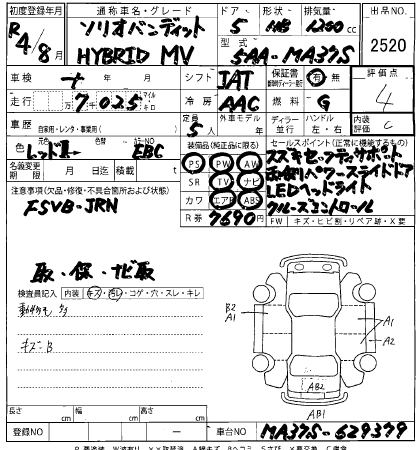 初度登録年月 通称車名・グレード ドア 形状 排気量 出品NO
R4/8月 ソリオバンディット HYBRID MV 5 HB 1200cc 2520
型式 5AA-MA37S
車検 年 月 シフト IAT 保証書 有 無 評価点 4
走行 7,025 マイル キロ 冷房 AAC 燃料 G
車歴 自家用・レンタ・事業用( ) 定員 5人 外車モデル 年 ディーラー 並行 ハンドル 左・右 内装評価 C
色 元色 レッドII 色替 カラーNO EBC 装備品(純正品に限る) セールスポイント(正常に機能するもの)
名義変更期限 月 日迄 積載 t PS PW AW スズキセーフティサポート
注意事項(欠品・修復・不具合箇所および状態) SR TV ナビ 両側パワースライドドア
FSVB-JRN カワ エアB ABS LEDヘッドライト
R券 7690円 クルーズコントロール
FW キズ・ヒビ割・リペア跡・X要
取・保・ナビ取
検査員記入 内装 キズ・汚レ・コゲ・穴・スレ・キレ
キズ-B
B2
A1
A1
A2
AB2
AB1
長さ cm 幅 cm 高さ cm
登録NO ー 車台NO MA37S-629379